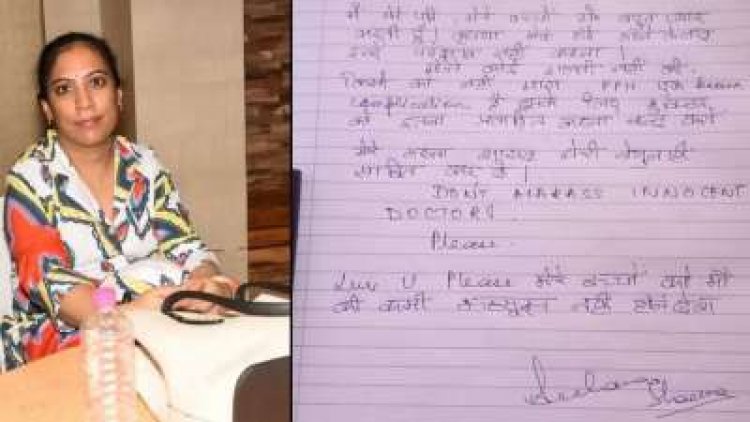 मैं मेरे पति, मेरे बच्चों से बहुत प्यार
करती हूँ। कृपया मेरे मरने के बाद
इन्हें परेशान नहीं करना।
मैंने कोई गलती नहीं की,
किसी को नहीं मारा PPH एक
complication है इसके लिए डॉक्टर
को इतना प्रताड़ित करना बंद करो
मेरा मरना शायद मेरी बेगुनाही
साबित कर दे।
DON'T HARASS INNOCENT
DOCTORS.
Please
Luv U Please मेरे बच्चों को माँ
की कमी महसूस नहीं होने देना
Archana
Sharma